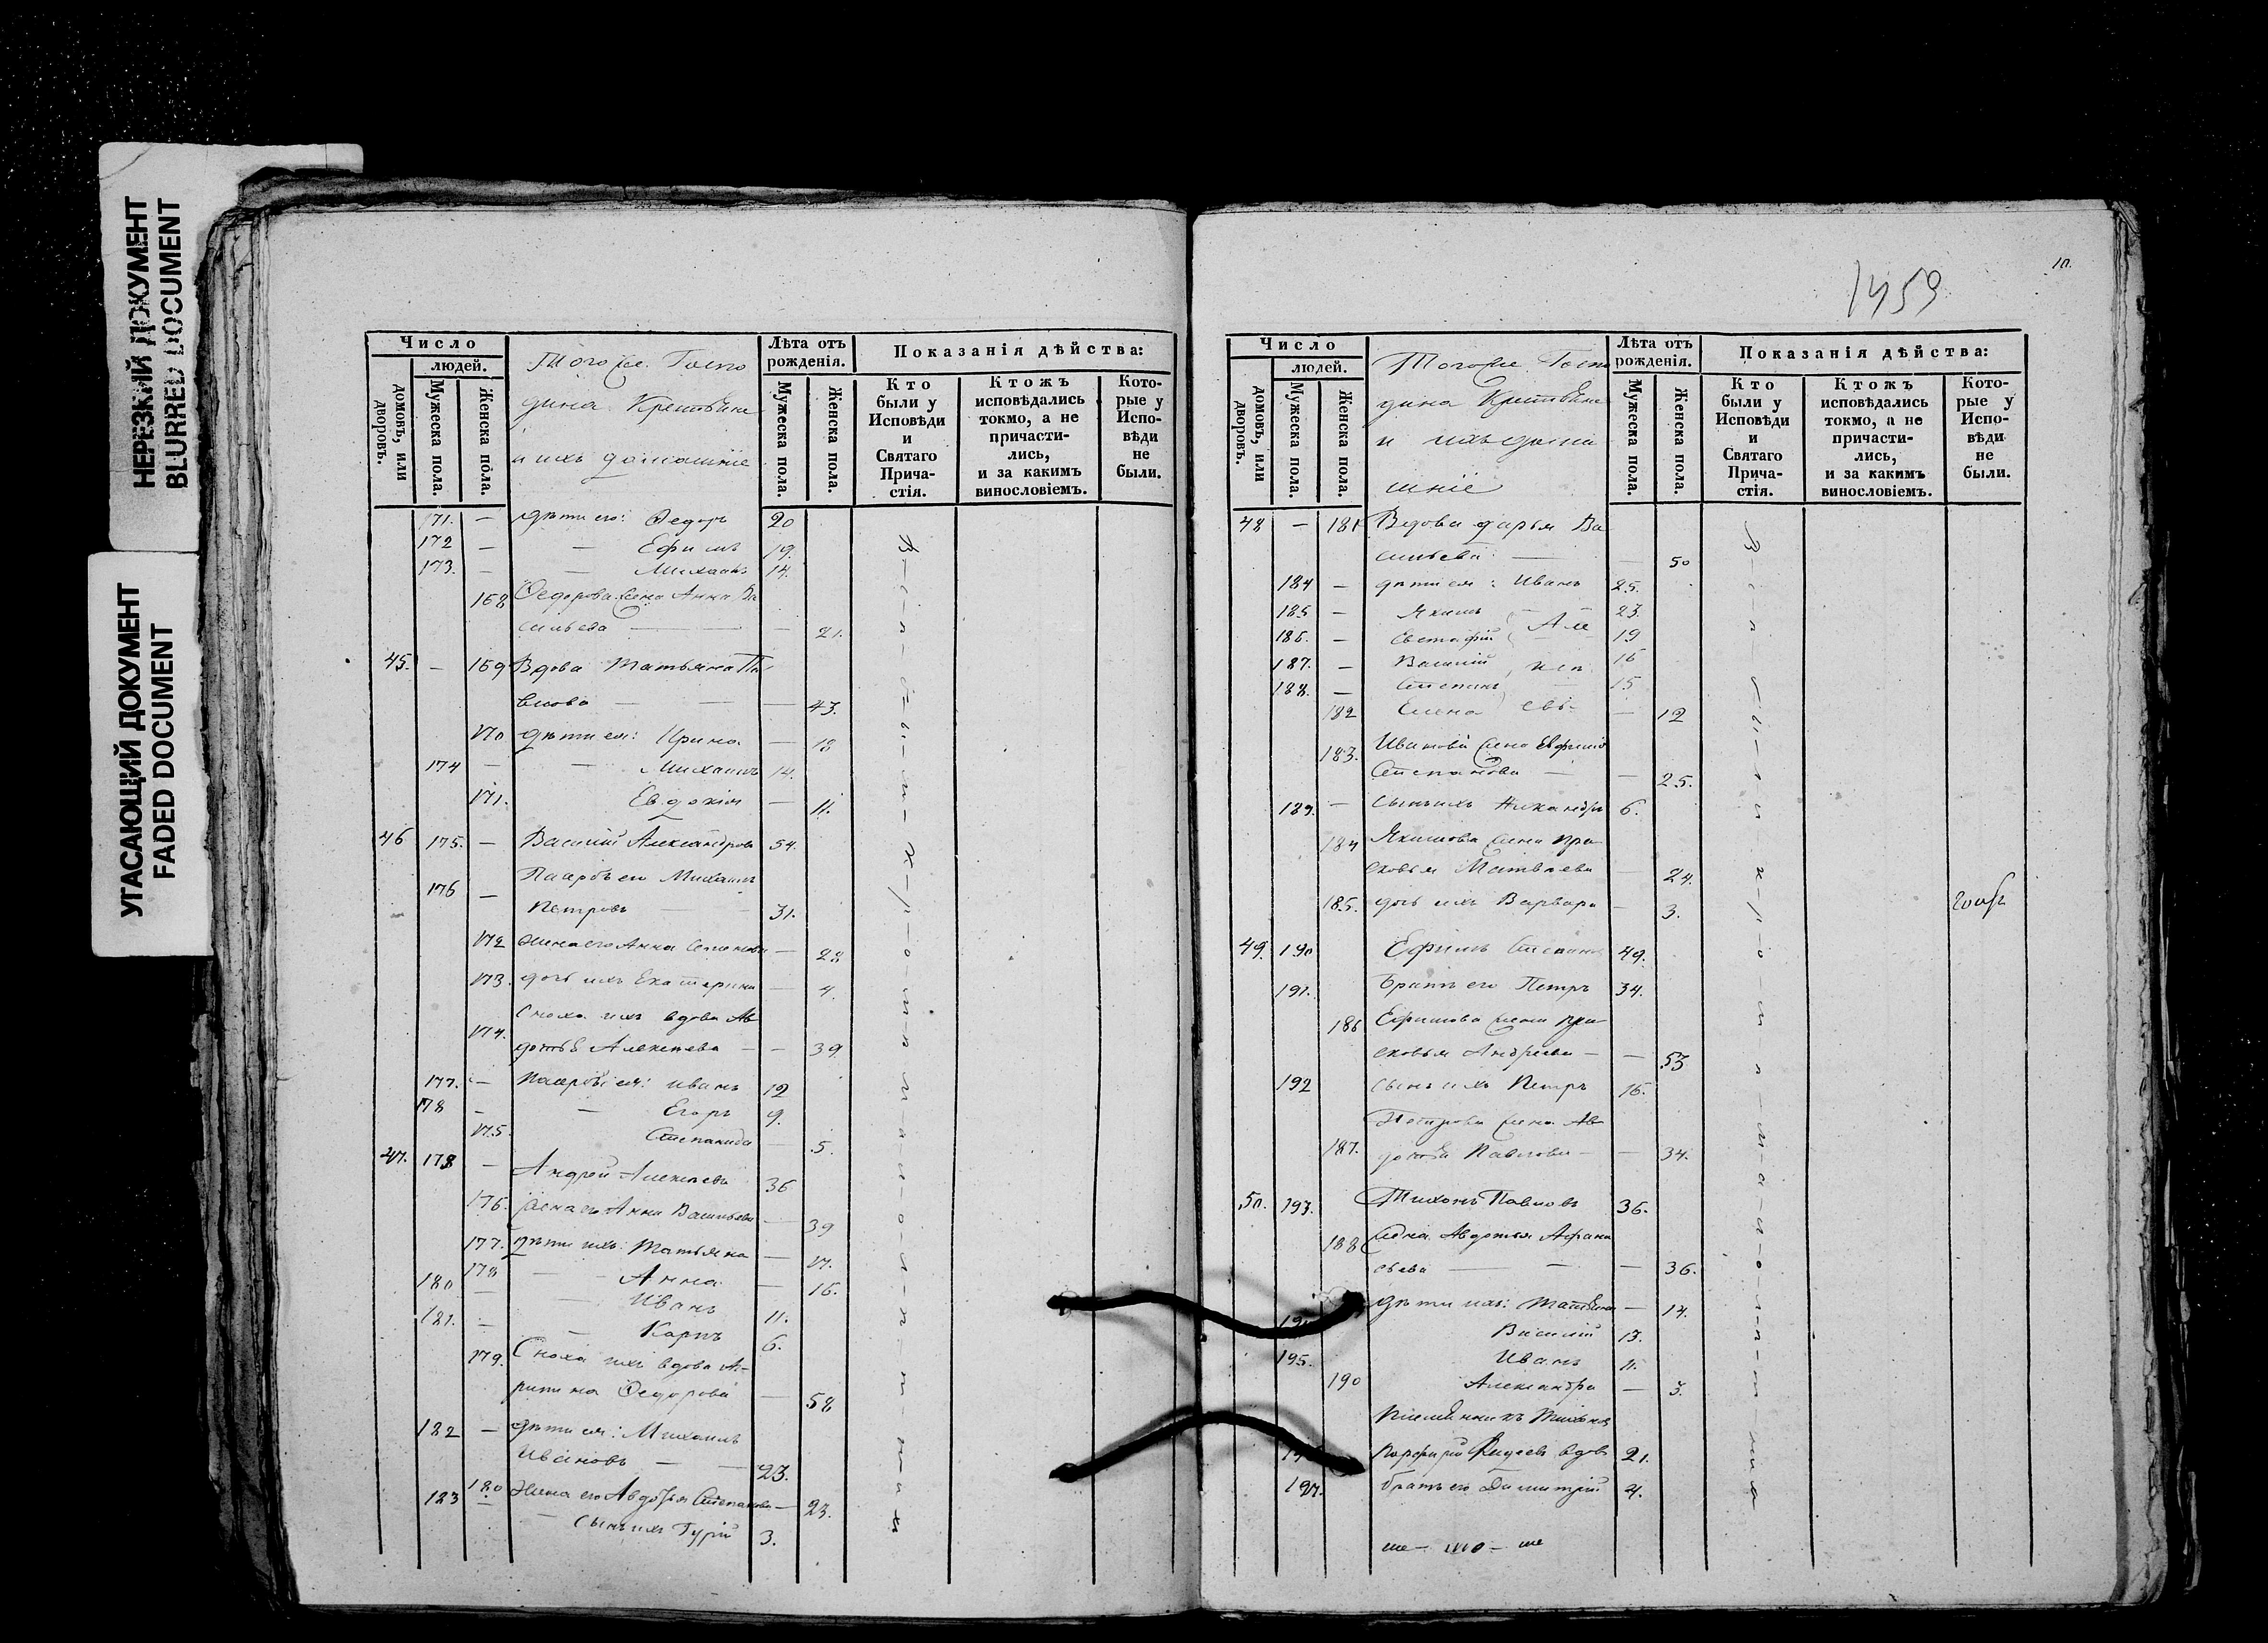 НЕРЕЗКИЙ ДОКУМЕНТ
BLURRED DOCUMENT
УГАСАЮЩИЙ ДОКУМЕНТ
FADED DOCUMENT
Число
людей.
домовъ, или дворовъ.
Мужеска пола.
Женска пола.
Тогоже Госпо
дина Крестьяне
и ихъ домашніе
Лѣта отъ рожденія.
Мужеска пола.
Женска пола.
Показанія дѣйства:
Кто были у Исповѣди и Святаго Прича-стія.
Ктожъ исповѣдались токмо, а не причасти-лись, и за какимъ винословіемъ.
Кото-рые у Испо-вѣди не были.
171. — дѣти его: Федоръ 20
172 — — Ефимъ 19.
173. — — Михаилъ 14.
168 Федорова жена Анна Ва
сильева — — 21.
45. — 169 Вдова Татьяна Па
влова — — — 43.
170 дѣти ея: Ирина — 18
174 — — Михаилъ 14.
171. Евдокія — 11.
46 175. — Василій Александровъ 54.
176 — Михаилъ
Петровъ — 31.
172 жена его Анна Семенова — 28
173. дочь ихъ Екатерина — 4.
174. Сноха ихъ вдова Ав
дотья Алексѣева — — 39
177. — ея: Иванъ 12
178 — — Егоръ 9.
175. Степанида — 5.
47. 179 — Андрей Алексѣевъ 36
176. жена его Анна Васильева — 39
177. дѣти ихъ: Татьяна — 17.
178 — Анна — 16.
180 — — Иванъ 11.
181. — — Карпъ 6.
179. Сноха ихъ вдова
Федорова — 58
182 — дѣти ея: Михаилъ
Ивановъ — — 23.
180 Жена его Авдотья Степанова — 23.
183 — — сынъ ихъ Гурій 3.
1459
10.
Число
людей.
домовъ, или дворовъ.
Мужеска пола.
Женска пола.
Тогоже Госпо
дина Крестьяне
и ихъ дома
шніе
Лѣта отъ рожденія.
Мужеска пола.
Женска пола.
Показанія дѣйства:
Кто были у Исповѣди и Святаго Прича-стія.
Ктожъ исповѣдались токмо, а не причасти-лись, и за какимъ винословіемъ.
Кото-рые у Испо-вѣди не были.
48 — 181 Вдова Дарья Ва
сильева — — 50
184 — дѣти ея: Иванъ 25.
185 — Якимъ 23.
186. — Евстафій Але 19
187. — Василій 16
188. — Степанъ 15
182 Елена евы — 12
183. Иванова жена Евфимія
Степанова — — 25.
189. — сынъ ихъ Никандръ 6.
184 Якимова жена Пра
сковья Матвѣева — 24.
185. дочь ихъ Варвара — 3.
49. 190 Ефимъ Степановъ 49.
191. Братъ его Петръ 34.
186 Ефимова жена Пра
сковья Андреева — — 53
192 сынъ ихъ Петръ 16.
187. Петрова жена Ав
дотья Павлова — — 34.
50. 193. Тихонъ Павловъ 36.
188 Жена Авдотья Афана
сьева — — — 36.
дѣти ихъ: Татьяна — 14.
Василій 13.
195. Иванъ 11.
190 Александра — 3.
Племянникъ Тихона
Порфирій вдовъ 21.
197. братъ его Димитрій 4.